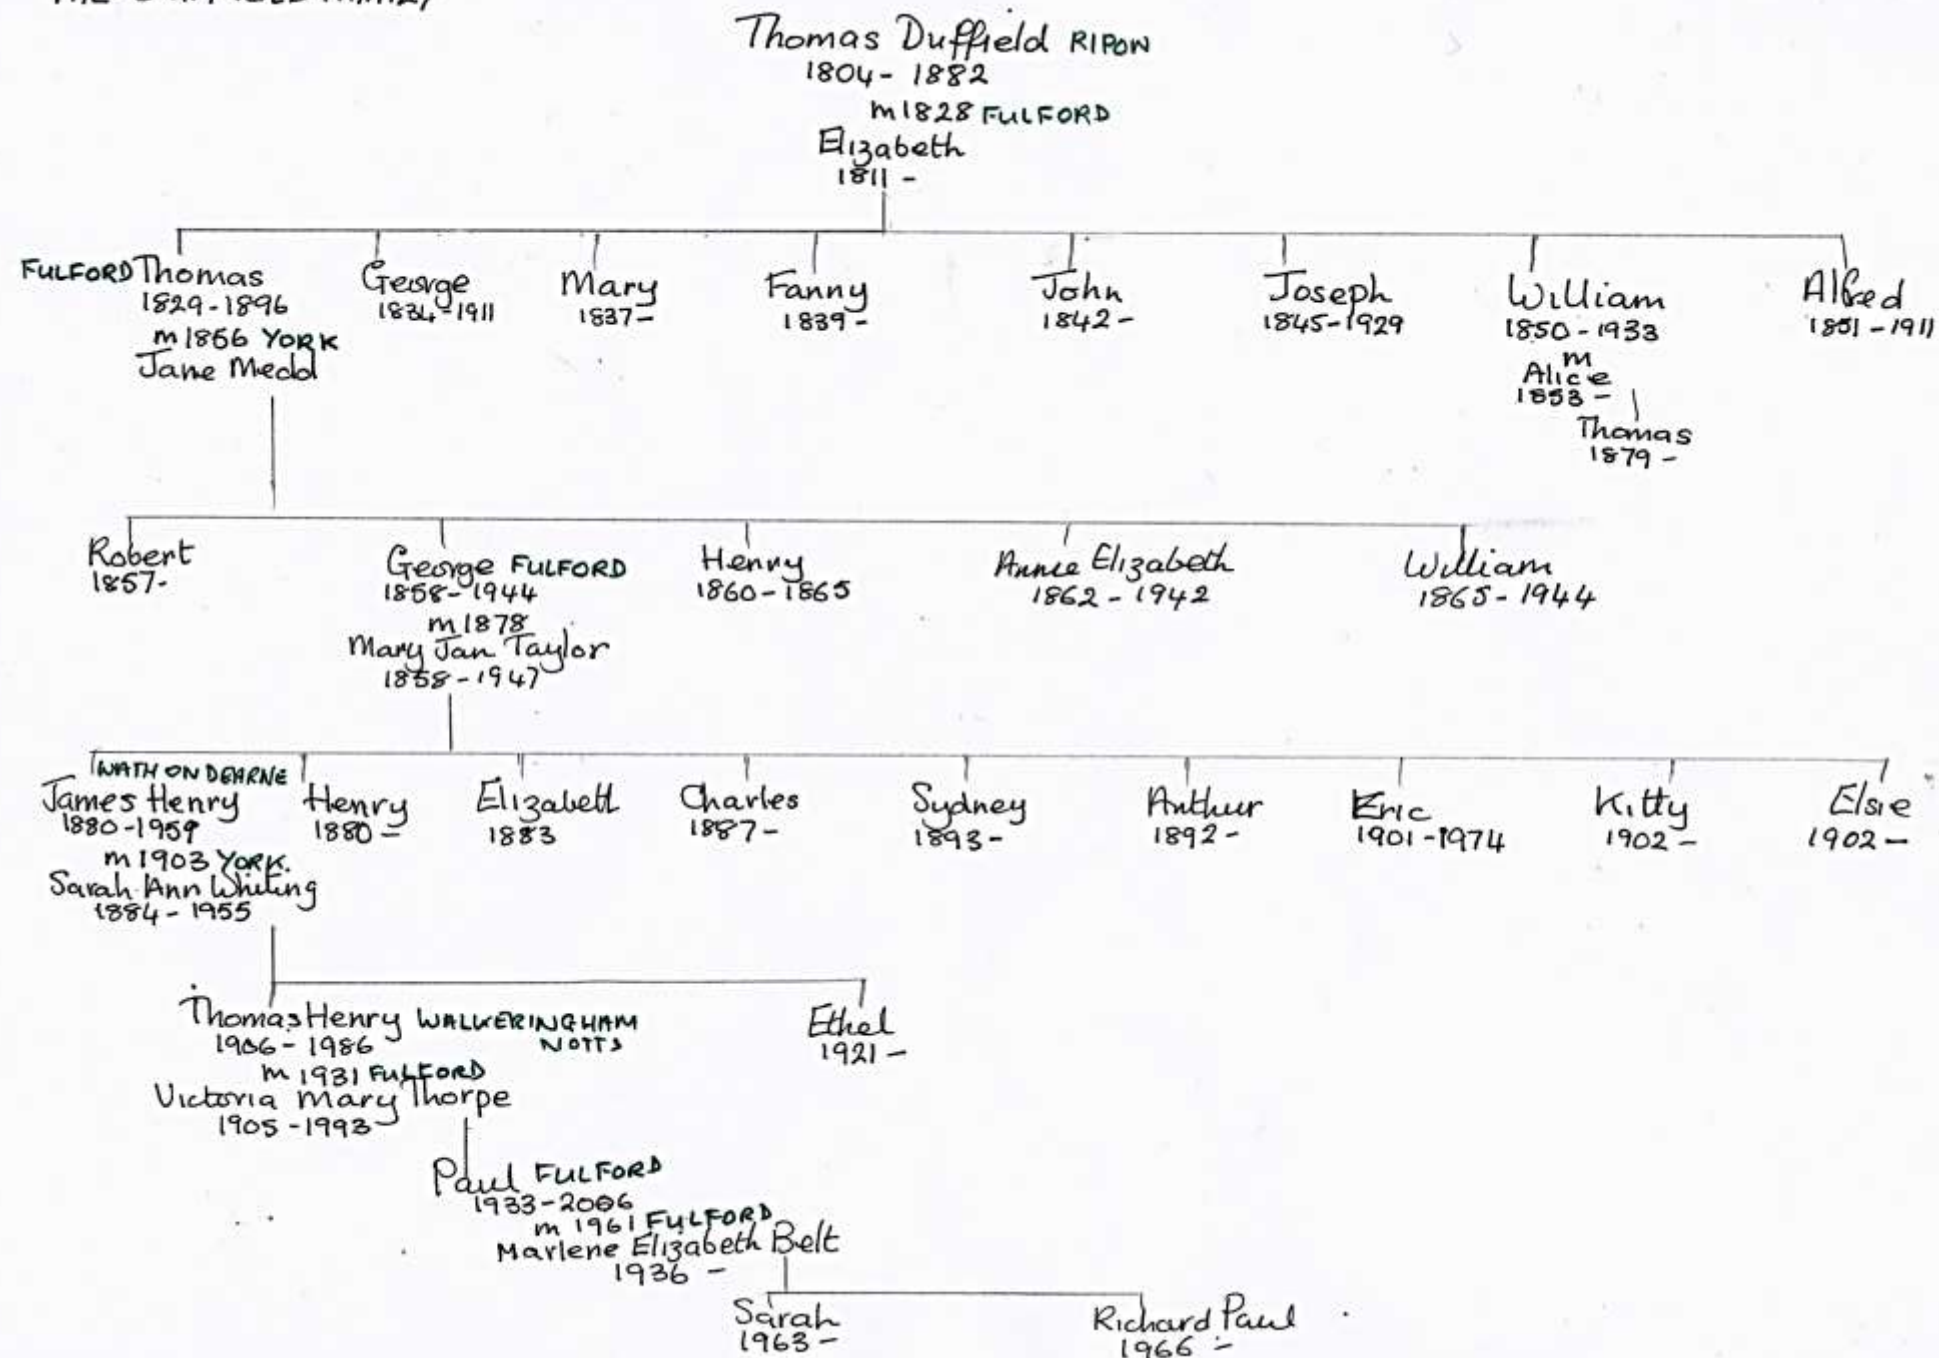 Thomas Duffield RIPON
1804 - 1882
m 1828 FULFORD
Elizabeth
1811 -
FULFORD Thomas
1829-1896
m 1856 YORK
Jane Medd
George
1834-1911
Mary
1837-
Fanny
1839-
John
1842-
Joseph
1845-1929
William
1850-1933
m
Alice
1853-
Thomas
1879-
Alfred
1851-1911
Robert
1857-
George FULFORD
1858-1944
m 1878
Mary Jan Taylor
1858-1947
Henry
1860-1865
Annie Elizabeth
1862-1942
William
1865-1944
WATH ON DEARNE
James Henry
1880-1959
m 1903 YORK.
Sarah Ann Whiting
1884-1955
Henry
1880-
Elizabeth
1883
Charles
1887-
Sydney
1893-
Arthur
1892-
Eric
1901-1974
Kitty
1902-
Elsie
1902-
Thomas Henry WALKERINGHAM
NOTTS
1906-1986
m 1931 FULFORD
Victoria Mary Thorpe
1905-1993
Ethel
1921-
Paul FULFORD
1933-2006
m 1961 FULFORD
Marlene Elizabeth Belt
1936 -
Sarah
1963-
Richard Paul
1966-